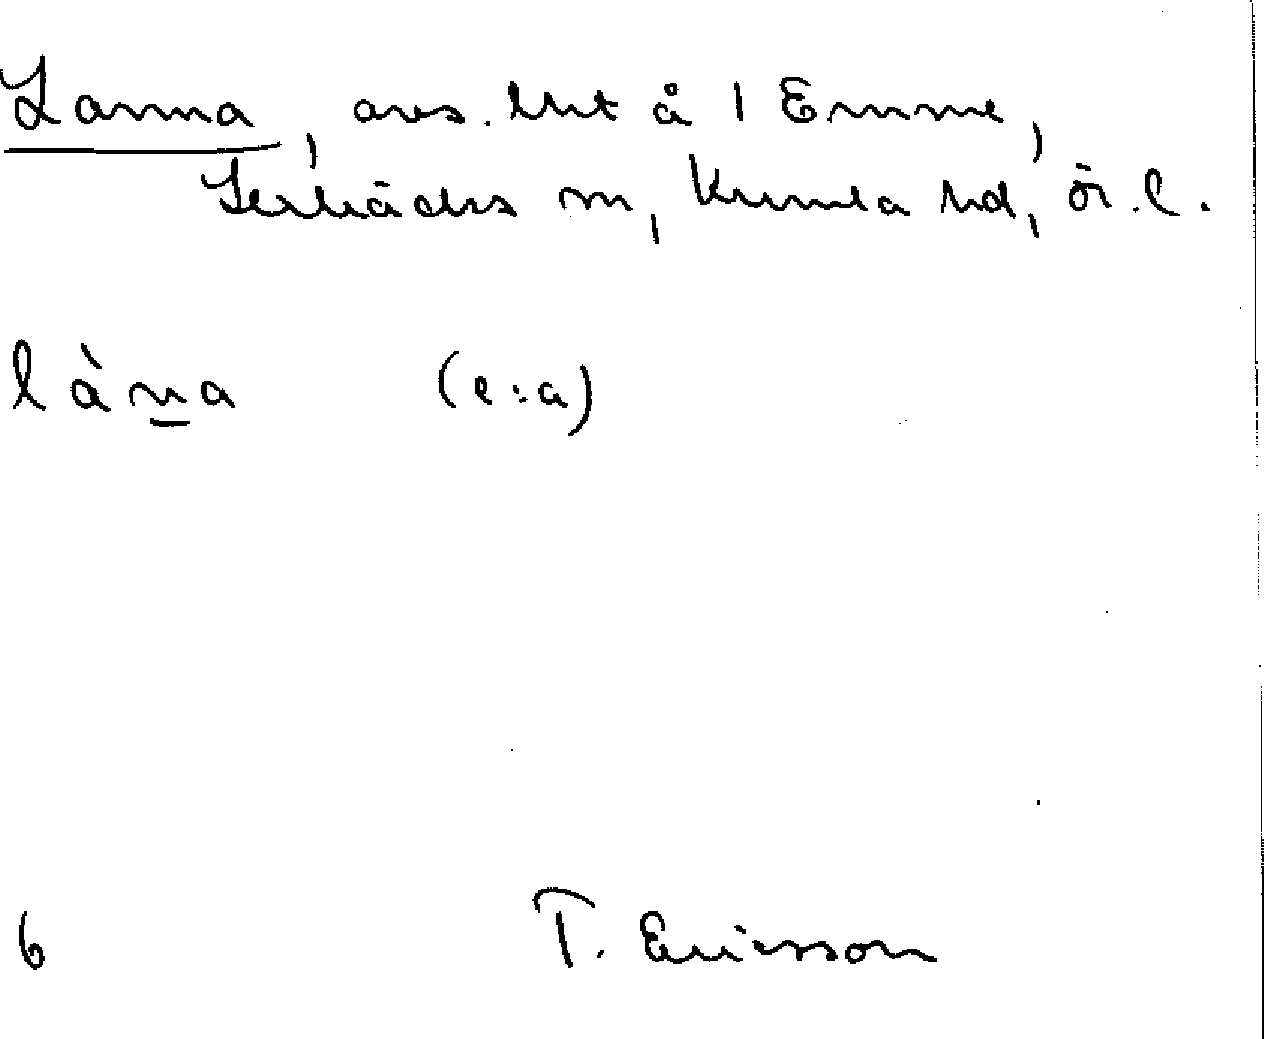 Lanna, avs. lht å 1 Emme,
Lerbäcks sn, Kumla hd, ör. l.
làn̲a (e:a)
6 T. Ericsson